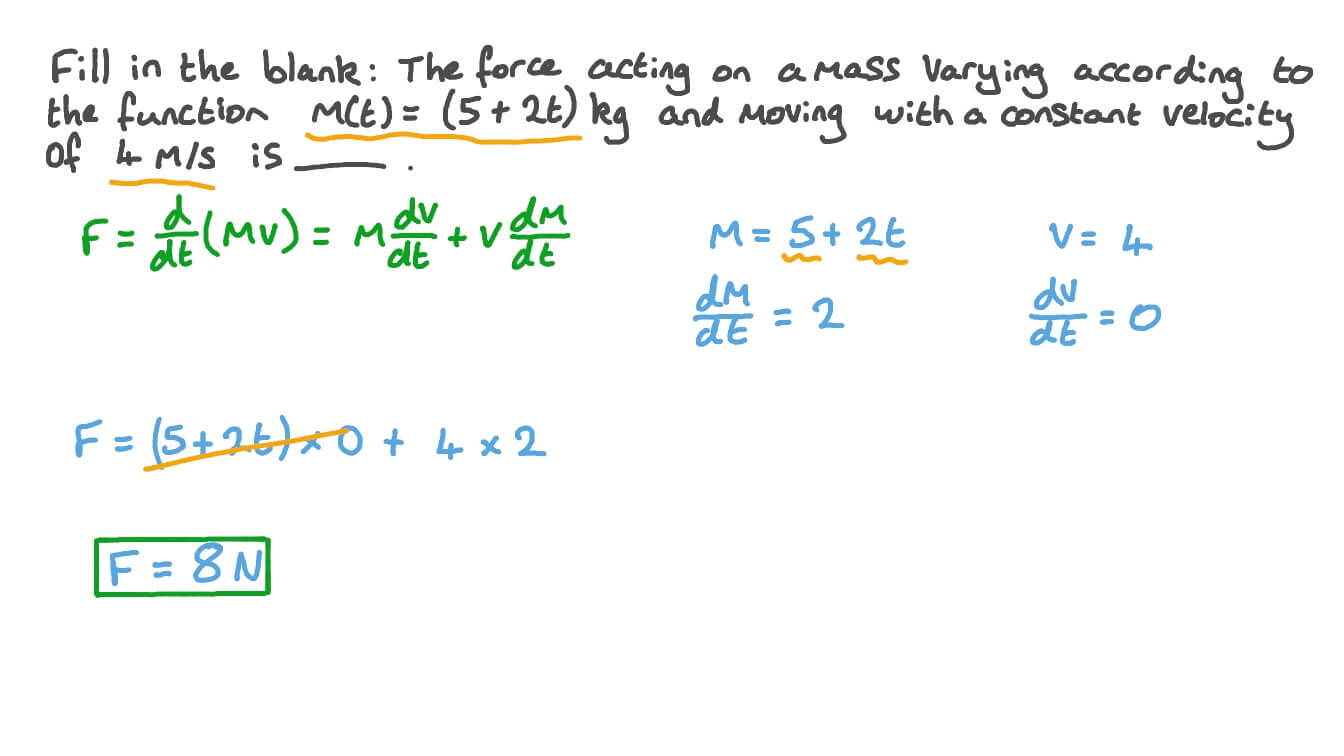 Fill in the blank: The force acting on a mass varying according to
the function m(t) = (5 + 2t) kg and moving with a constant velocity
of 4 m/s is ____ .
F = d/dt (mv) = m dv/dt + v dm/dt
m = 5 + 2t
v = 4
dm/dt = 2
dv/dt = 0
F = (5+2t) × 0 + 4 × 2
F = 8 N